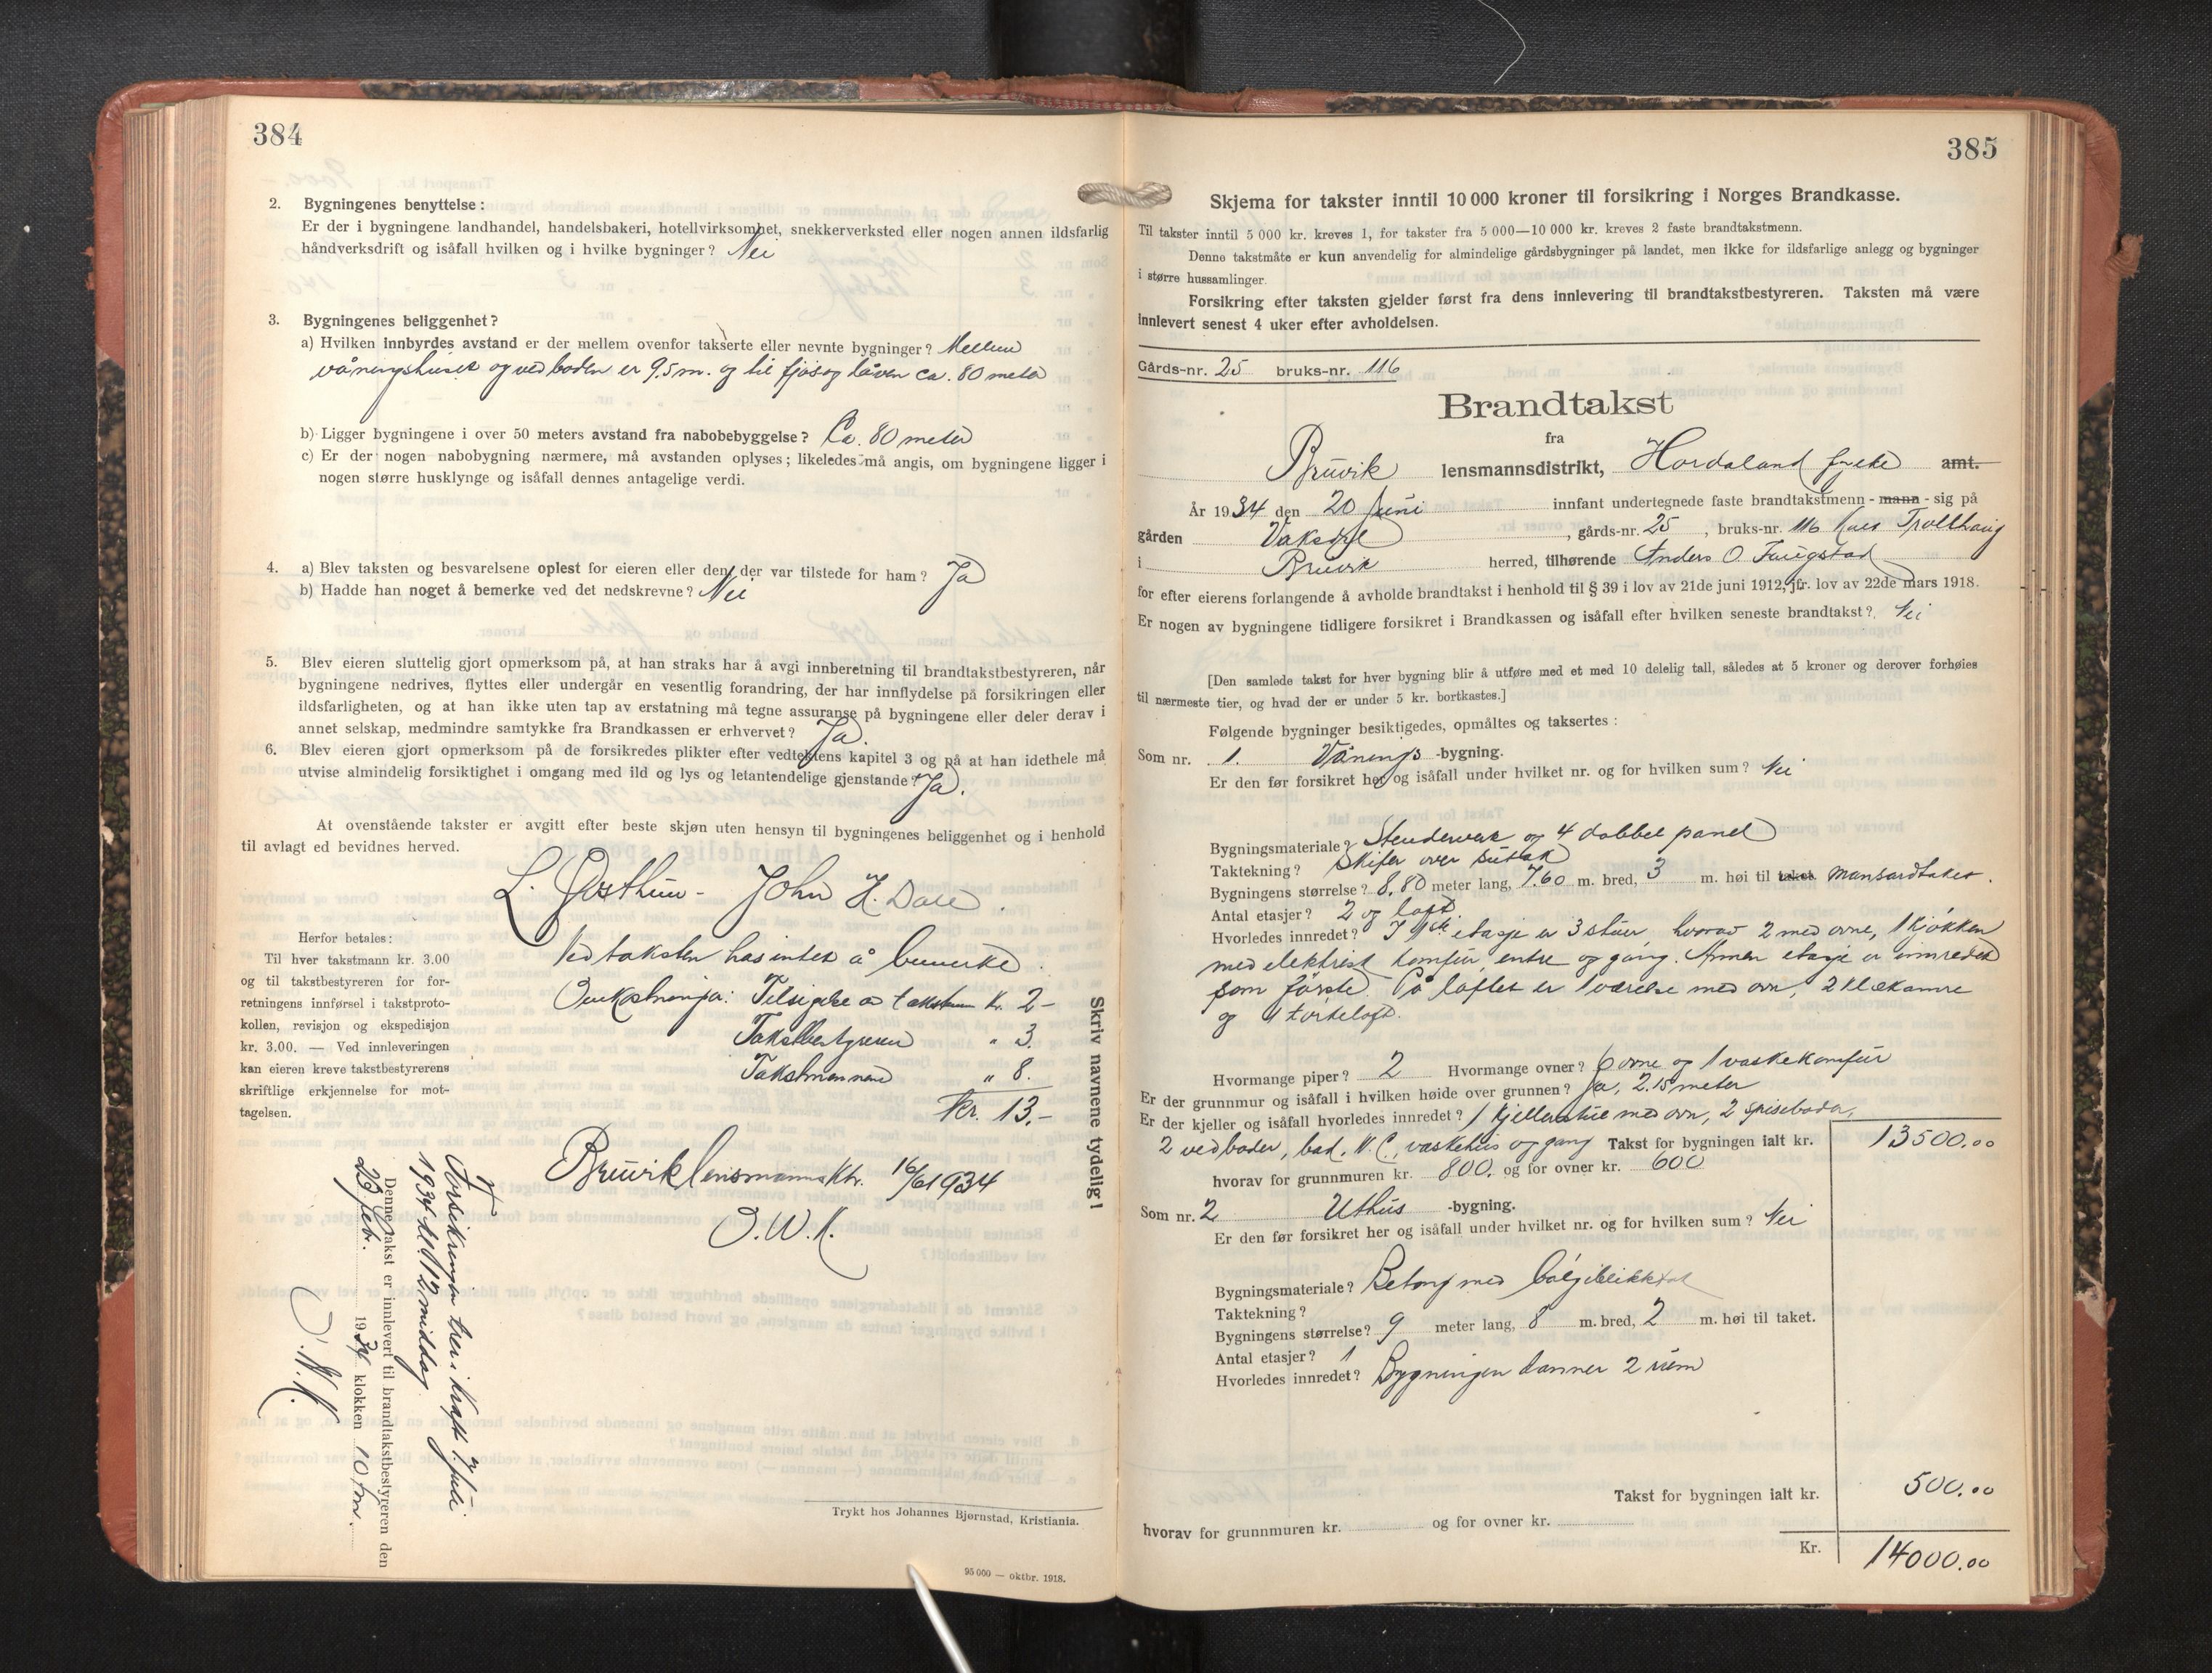 384
2. Bygningenes benyttelse:
Er der i bygningene landhandel, handelsbakeri, hotellvirksomhet, snekkerverksted eller nogen annen ildsfarlig
håndverksdrift og isåfall hvilken og i hvilke bygninger? Nei
3. Bygningenes beliggenhet?
a) Hvilken innbyrdes avstand er der mellem ovenfor takserte eller nevnte bygninger? Mellem
våningshuset og vedboden er 9.5 m. og til fjøs og låven ca. 80 meter
b) Ligger bygningene i over 50 meters avstand fra nabobebyggelse? Ca. 80 meter
c) Er der nogen nabobygning nærmere, må avstanden oplyses; likeledes må angis, om bygningene ligger i
nogen større husklynge og isåfall dennes antagelige verdi.
4. a) Blev taksten og besvarelsene oplest for eieren eller den, der var tilstede for ham? Ja
b) Hadde han noget å bemerke ved det nedskrevne? Nei
5. Blev eieren sluttelig gjort opmerksom på, at han straks har å avgi innberetning til brandtakstbestyreren, når
bygningene nedrives, flyttes eller undergår en vesentlig forandring, der har innflydelse på forsikringen eller
ildsfarligheten, og at han ikke uten tap av erstatning må tegne assuranse på bygningene eller deler derav i
annet selskap, medmindre samtykke fra Brandkassen er erhvervet? Ja.
6. Blev eieren gjort opmerksom på de forsikredes plikter efter vedtektens kapitel 3 og på at han idethele må
utvise almindelig forsiktighet i omgang med ild og lys og letantendelige gjenstande? Ja.
At ovenstående takster er avgitt efter beste skjøn uten hensyn til bygningenes beliggenhet og i henhold
til avlagt ed bevidnes herved.
L. Østhun - John H. Dale.
Ved taksten has intet å bemerke.
Herfor betales:
Til hver takstmann kr. 3.00
og til takstbestyreren for for-
retningens innførsel i takstproto-
kollen, revisjon og ekspedisjon
kr. 3.00. — Ved innleveringen
kan eieren kreve takstbestyrerens
skriftlige erkjennelse for mot-
tagelsen.
Omkostninger: Tilsigelse av takstmenn kr. 2-
Takstbestyreren " 3.
Takstmennene " 8.
Kr. 13.-
Bruvik lensmannsktr. 16/6 1934
O.W.K.
Skriv navnene tydelig!
Forsikringen trer i kraft 7. juli
1934 kl. 12 middag
Denne takst er innlevert til brandtakstbestyreren den
23 febr. 1934 klokken 10 fm.
O.W.K.
Trykt hos Johannes Bjørnstad, Kristiania.
95 000 — oktbr. 1918.
385
Skjema for takster inntil 10 000 kroner til forsikring i Norges Brandkasse.
Til takster inntil 5 000 kr. kreves 1, for takster fra 5 000—10 000 kr. kreves 2 faste brandtakstmenn.
Denne takstmåte er kun anvendelig for almindelige gårdsbygninger på landet, men ikke for ildsfarlige anlegg og bygninger
i større hussamlinger.
Forsikring efter taksten gjelder først fra dens innlevering til brandtakstbestyreren. Taksten må være
innlevert senest 4 uker efter avholdelsen.
Gårds-nr. 25 bruks-nr. 116
Brandtakst
fra
Bruvik lensmannsdistrikt, Hordaland fylke amt.
År 1934 den 20 juni innfant undertegnede faste brandtakstmenn - mann - sig på
gården Vaksdal, gårds-nr. 25, bruks-nr. 116 Trollhaug
i Bruvik herred, tilhørende Anders O. Faugstad
for efter eierens forlangende å avholde brandtakst i henhold til § 39 i lov av 21de juni 1912, jfr. lov av 22de mars 1918.
Er nogen av bygningene tidligere forsikret i Brandkassen og isåfall efter hvilken seneste brandtakst? Nei
[Den samlede takst for hver bygning blir å utføre med et med 10 delelig tall, således at 5 kroner og derover forhøies
til nærmeste tier, og hvad der er under 5 kr. bortkastes.]
Følgende bygninger besiktigedes, opmåltes og taksertes:
Som nr. 1. Vånings -bygning.
Er den før forsikret her og isåfall under hvilket nr. og for hvilken sum? Nei
Bygningsmateriale? Stenderverk og 4 dobbel panel
Taktekning? Skifer over sutak
Bygningens størrelse? 8,80 meter lang, 7.60 m. bred, 3 m. høi til taket. mansardtaket.
Antal etasjer? 2 og loft.
Hvorledes innredet? I 1ste etasje er 3 stuer, hvorav 2 med ovne, 1 kjøkken
med elektrisk komfür, entre og gang. Annen etasje er innredet
som første. På loftet er 1 værelse med ovn, 2 klækamre
og 1 tørkeloft.
Hvormange piper? 2 Hvormange ovner? 6 ovne og 1 vaskekomfür
Er der grunnmur og isåfall i hvilken høide over grunnen? Ja, 2.15 meter
Er der kjeller og isåfall hvorledes innredet? 1 kjellerstue med ovn, 2 spiseboder,
2 vedboder, bad, W.C., vaskehus og gang Takst for bygningen ialt kr. 13500.00
hvorav for grunnmuren kr. 800. og for ovner kr. 600
Som nr. 2 Uthus -bygning.
Er den før forsikret her og isåfall under hvilket nr. og for hvilken sum? Nei
Bygningsmateriale? Betong med bølgeblikktak
Taktekning?
Bygningens størrelse? 9 meter lang, 8 m. bred, 2 m. høi til taket.
Antal etasjer? 1
Hvorledes innredet? Bygningen danner 2 rum
Takst for bygningen ialt kr. 500.00
hvorav for grunnmuren kr. og for ovner kr.
Kr. 14000.00